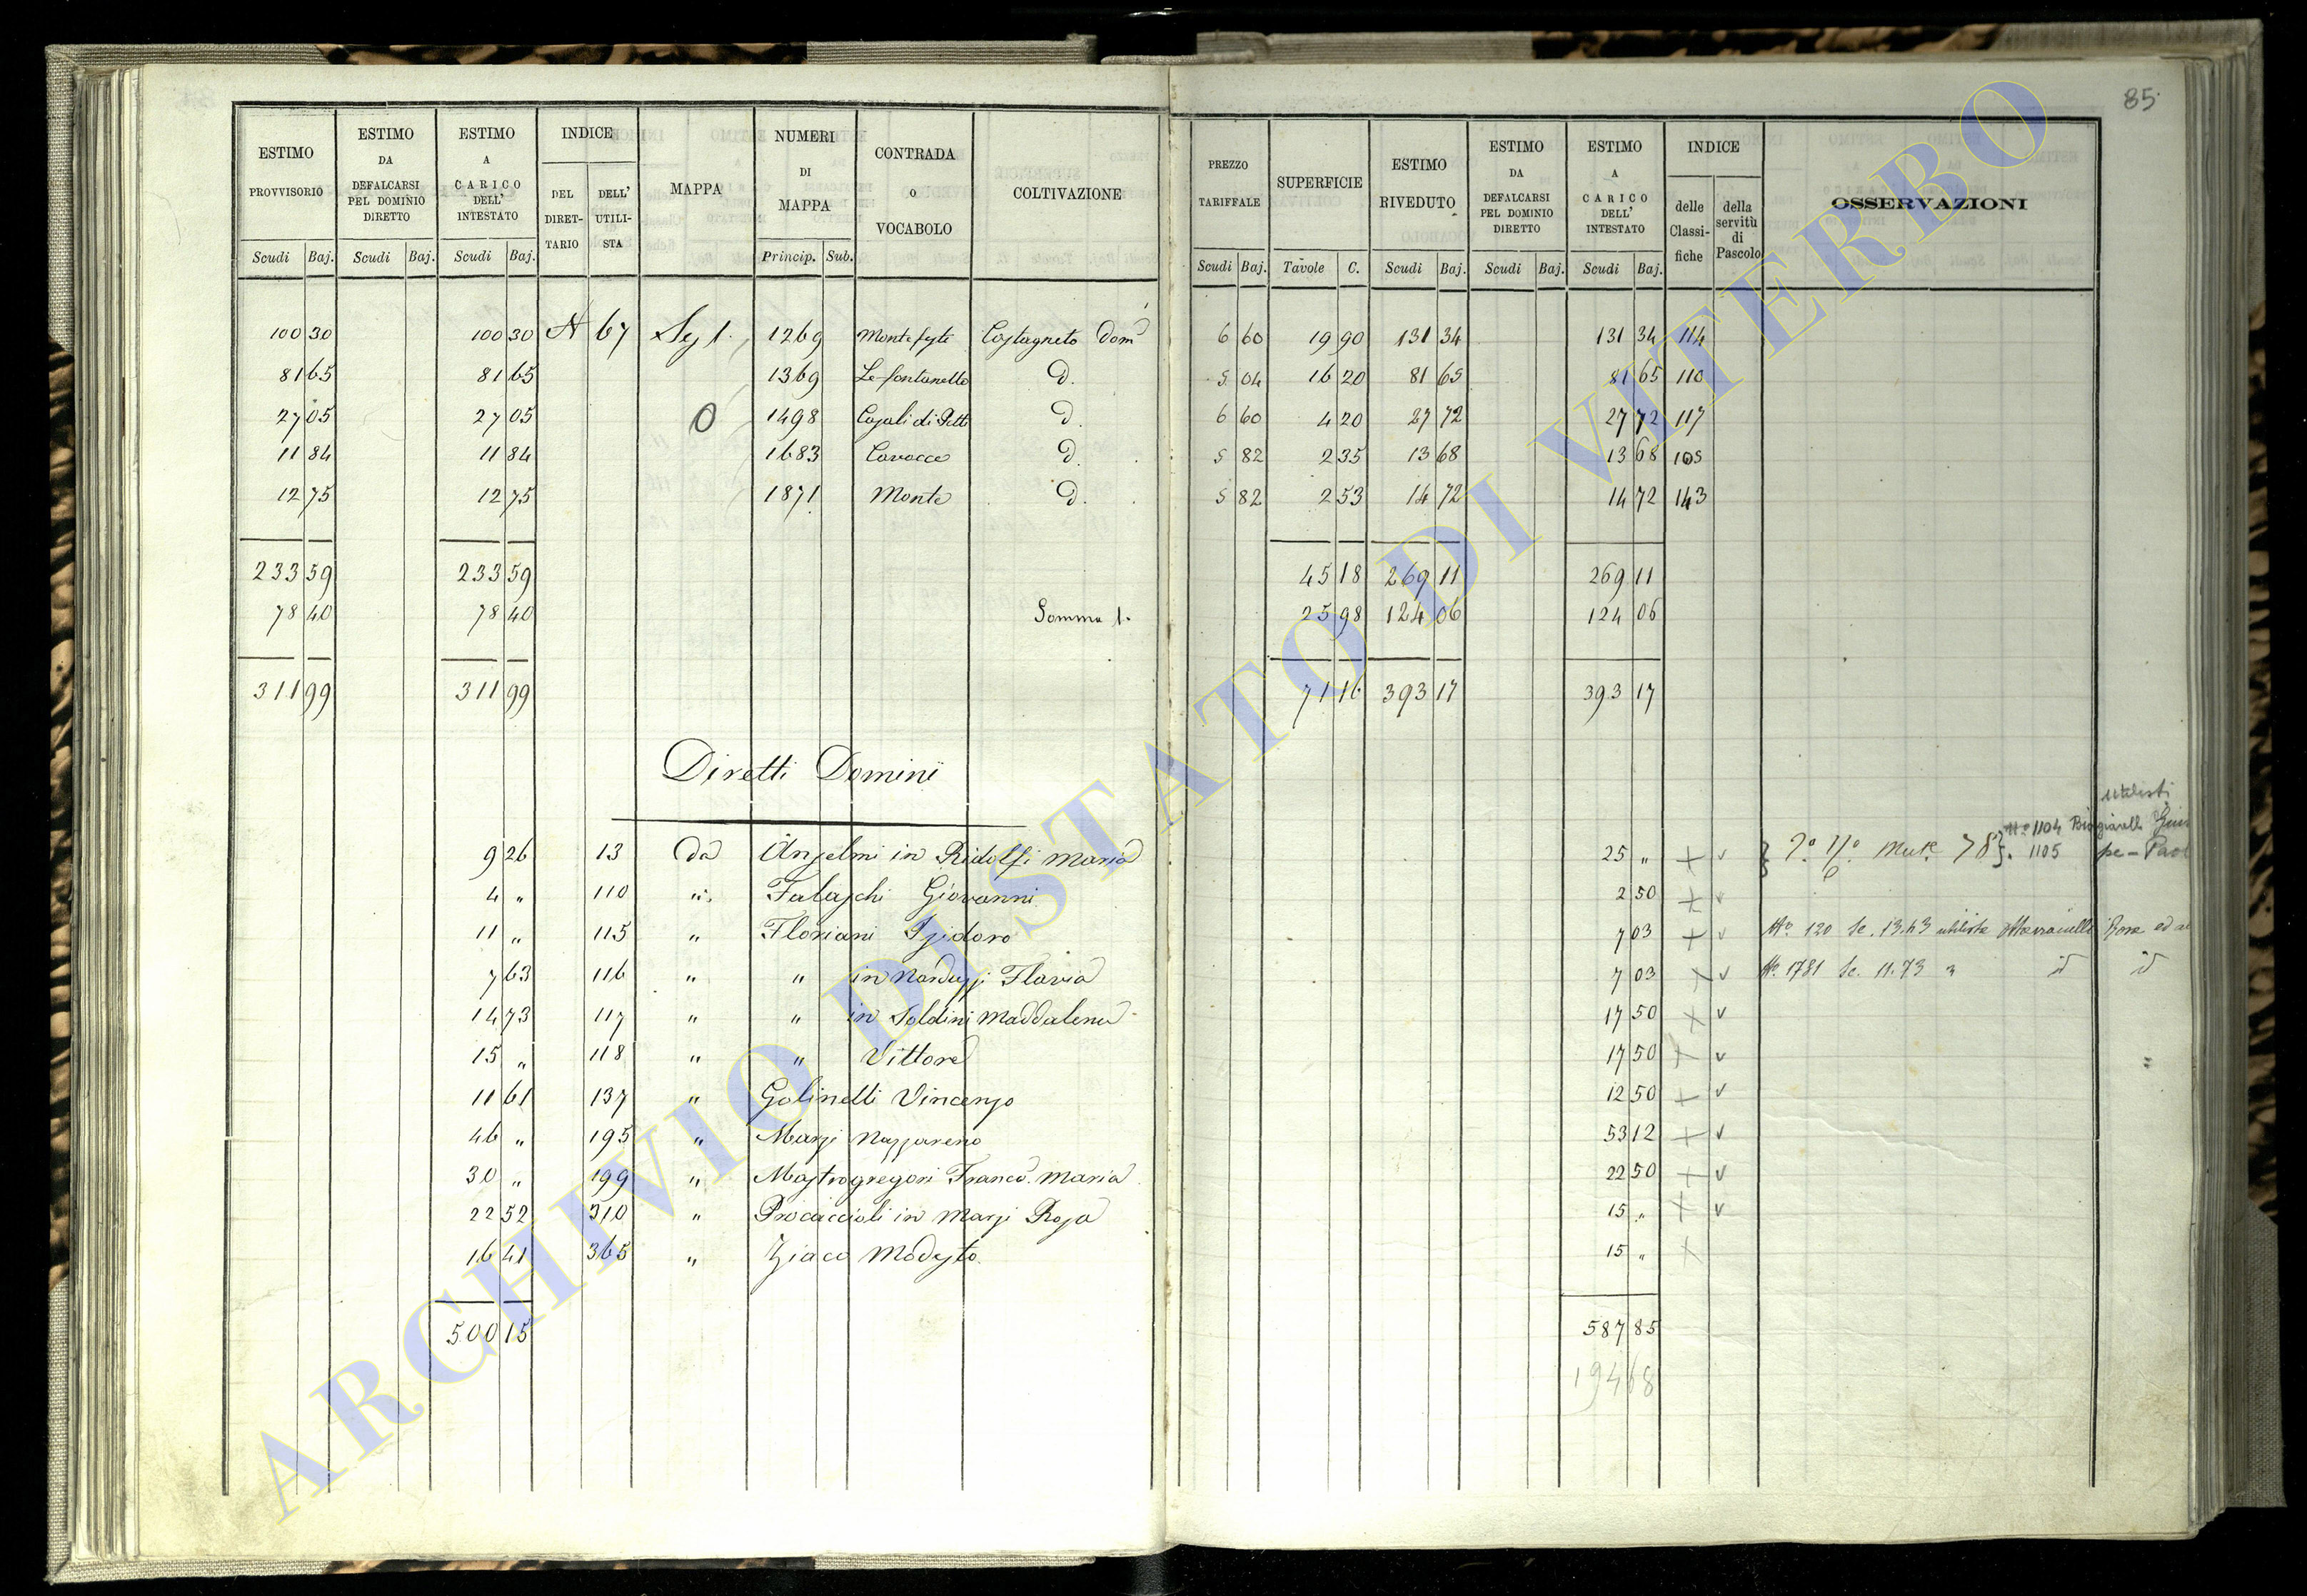 85
ESTIMO PROVVISORIO | ESTIMO DA DEFALCARSI PEL DOMINIO DIRETTO | ESTIMO A CARICO DELL' INTESTATO | INDICE DEL DIRETTARIO | DELL' UTILISTA | MAPPA | NUMERI DI MAPPA | CONTRADA o VOCABOLO | COLTIVAZIONE | PREZZO TARIFFALE | SUPERFICIE | ESTIMO RIVEDUTO | ESTIMO DA DEFALCARSI PEL DOMINIO DIRETTO | ESTIMO A CARICO DELL' INTESTATO | INDICE delle Classifiche | della servitù di Pascolo | OSSERVAZIONI
Scudi | Baj. | Scudi | Baj. | Scudi | Baj. | Princip. | Sub. | Scudi | Baj. | Tavole | C. | Scudi | Baj. | Scudi | Baj. | Scudi | Baj.
100 30 | 100 30 | A | 67 | Sez 1. | 1269 | Monte | Castagneto Dom | 6 60 | 19 90 | 131 34 | 131 34 | 114
81 65 | 81 65 | 1369 | Le fontanelle | d. | 5 04 | 16 20 | 81 65 | 81 65 | 110
27 05 | 27 05 | O | 1498 | Casali di | d. | 6 60 | 4 20 | 27 72 | 27 72 | 117
11 84 | 11 84 | 1683 | Cavacce | d. | 5 82 | 2 35 | 13 68 | 13 68 | 105
12 75 | 12 75 | 1871 | Monte | d. | 5 82 | 2 53 | 14 72 | 14 72 | 143
233 59 | 233 59 | 45 18 | 269 11 | 269 11
78 40 | 78 40 | Somma 1. | 25 98 | 124 06 | 124 06
311 99 | 311 99 | 71 16 | 393 17 | 393 17
Diretti Domini
utilisti
9 26 | 13 | da | Anselmi in Ridolfi Maria | 25 „ | + | v | 78 | N° 1104 1105
4 „ | 110 | „ | Falaschi Giovanni | 2 50 | + | v
11 „ | 115 | „ | Floriani Isidoro | 7 03 | + | v | N° 120 Sc. 13.63 utilista Rosa ed
7 63 | 116 | „ | „ in Narduzzi Flavia | 7 03 | + | v | N. 1781 Sc. 11.73 „ id id
14 73 | 117 | „ | „ in Soldini Maddalena | 17 50 | + | v
15 „ | 118 | „ | „ Vittore | 17 50 | + | v
11 61 | 137 | „ | Golinelli Vincenzo | 12 50 | + | v
46 „ | 195 | „ | Marzi Nazzareno | 53 12 | + | v
30 „ | 199 | „ | Mastrogregori Franco. Maria | 22 50 | + | v
22 52 | 310 | „ | Procaccioli in Marzi Rosa | 15 „ | + | v
16 41 | 365 | „ | Ziaco Modesto. | 15 „ | +
500 15 | 587 85
194 68
ARCHIVIO DI STATO DI VITERBO